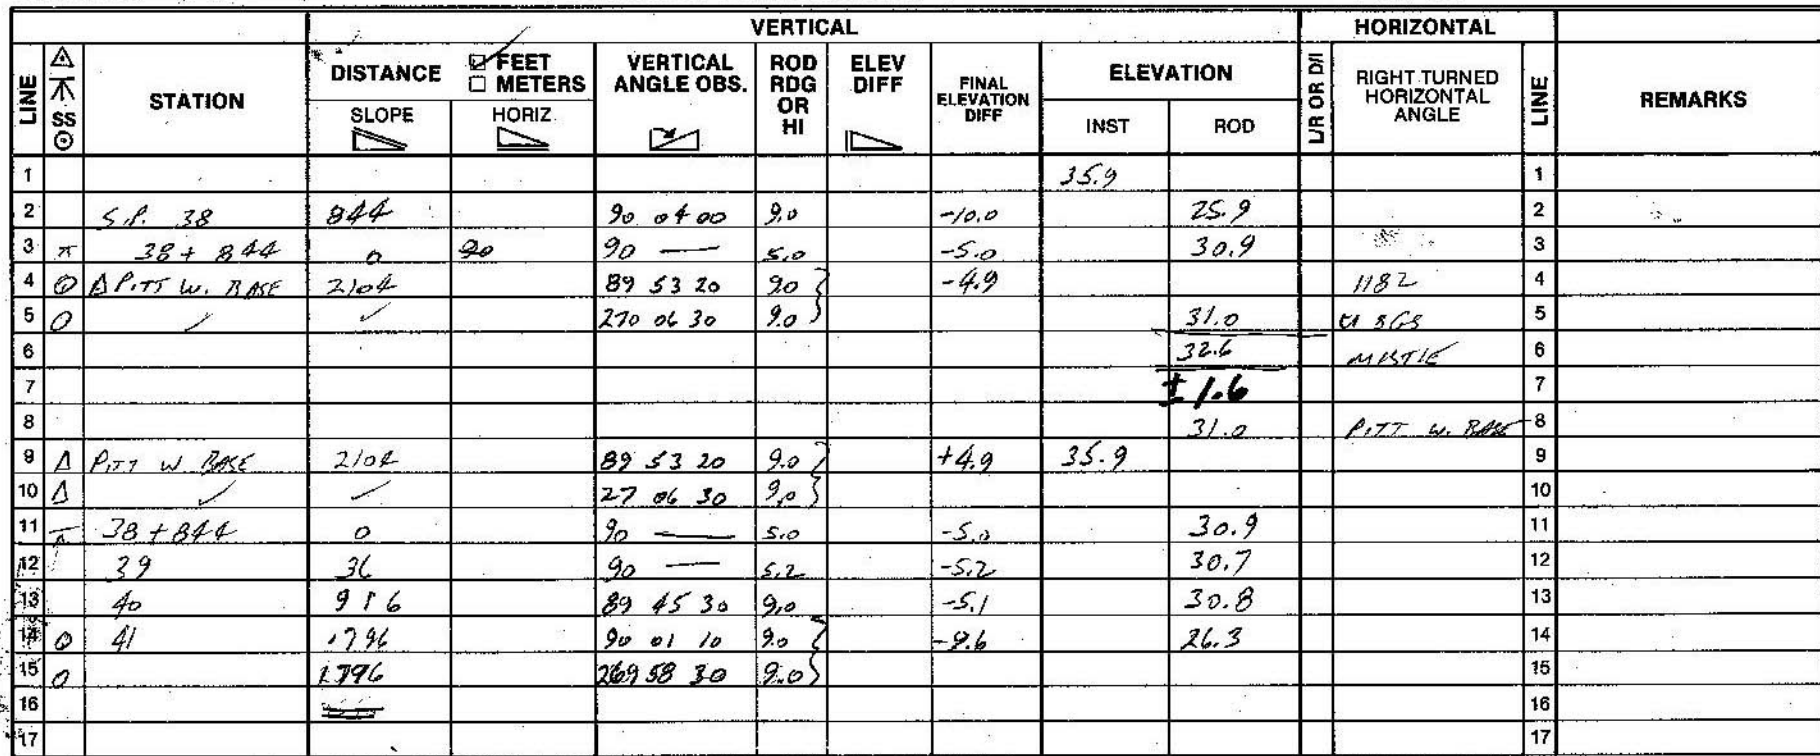 VERTICAL HORIZONTAL
LINE SS STATION DISTANCE FEET METERS VERTICAL ANGLE OBS. ROD RDG OR HI ELEV DIFF FINAL ELEVATION DIFF ELEVATION L/R OR D/I RIGHT TURNED HORIZONTAL ANGLE LINE REMARKS
SLOPE HORIZ. INST ROD
1 35.9 1
2 S.P. 38 844 90 04 00 9.0 -10.0 25.9 2
3 38 + 844 0 90 — 5.0 -5.0 30.9 3
4 Δ PITT W. BASE 2104 89 53 20 9.0 -4.9 1182 4
5 ✓ ✓ 270 06 30 9.0 31.0 USGS 5
6 32.6 MISTIE 6
7 ± 1.6 7
8 31.0 PITT W. BASE 8
9 Δ PITT W BASE 2104 89 53 20 9.0 +4.9 35.9 9
10 Δ ✓ ✓ 27 06 30 9.0 10
11 38 + 844 0 90 — 5.0 -5.0 30.9 11
12 39 36 90 — 5.2 -5.2 30.7 12
13 40 916 89 45 30 9.0 -5.1 30.8 13
14 41 1796 90 01 10 9.0 -9.6 26.3 14
15 1796 269 58 30 9.0 15
16 16
17 17